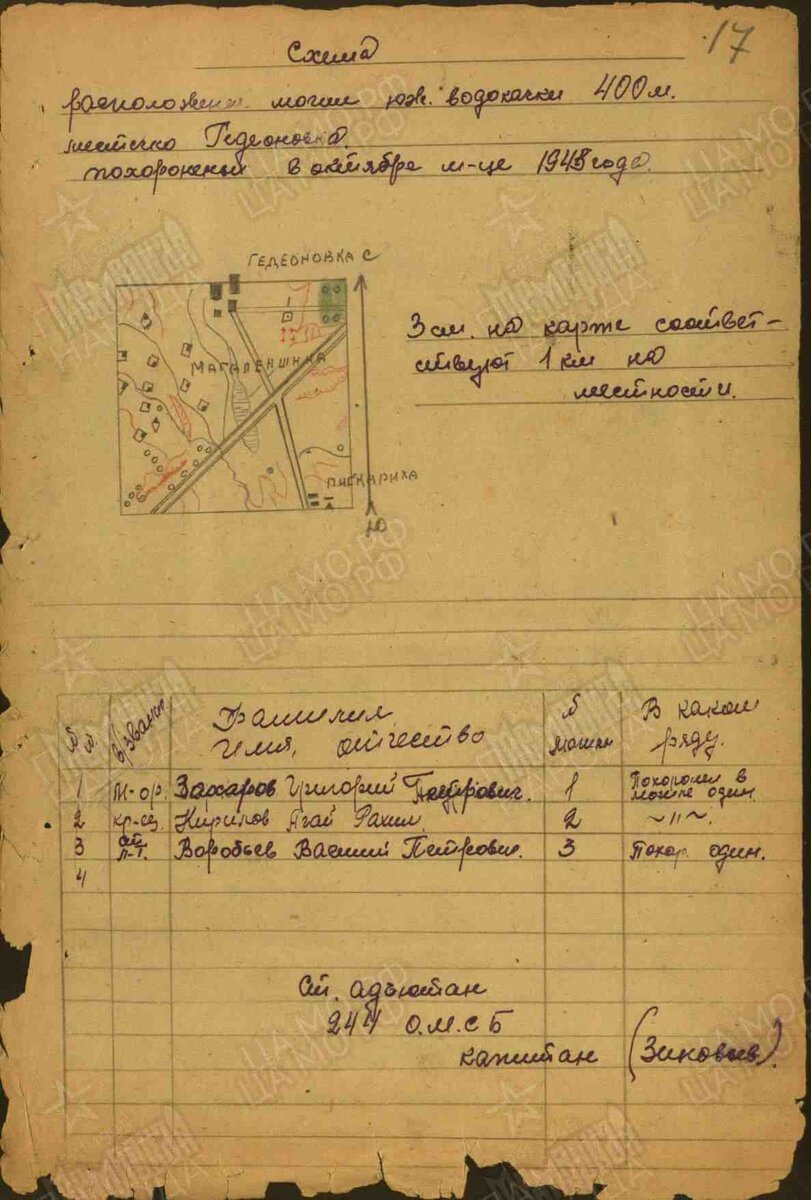 17
Схема
расположения могил юж. водокачки 400 м.
местечко Гедеоновка.
похоронены в октябре м-це 1943 года.
ГЕДЕОНОВКА С
МАГАЛЕНЩИНА
ПИСКАРИХА
Ю
3 см. на карте соответ-
ствуют 1 км на
местности.
№ п. в/звание Фамилия Имя, отчество № могилы В каком ряду.
1 М-ор. Захаров Григорий Петрович. 1 Похоронен в могиле один.
2 кр-ец. Кирилов Агай Рахим 2 ~ " ~.
3 ст. л-т. Воробьев Василий Петрович. 3 Похор. один.
4
Ст. адъютан
244 О.М.С.Б
капитан (Зиновьев).
ЦАМО.РФ